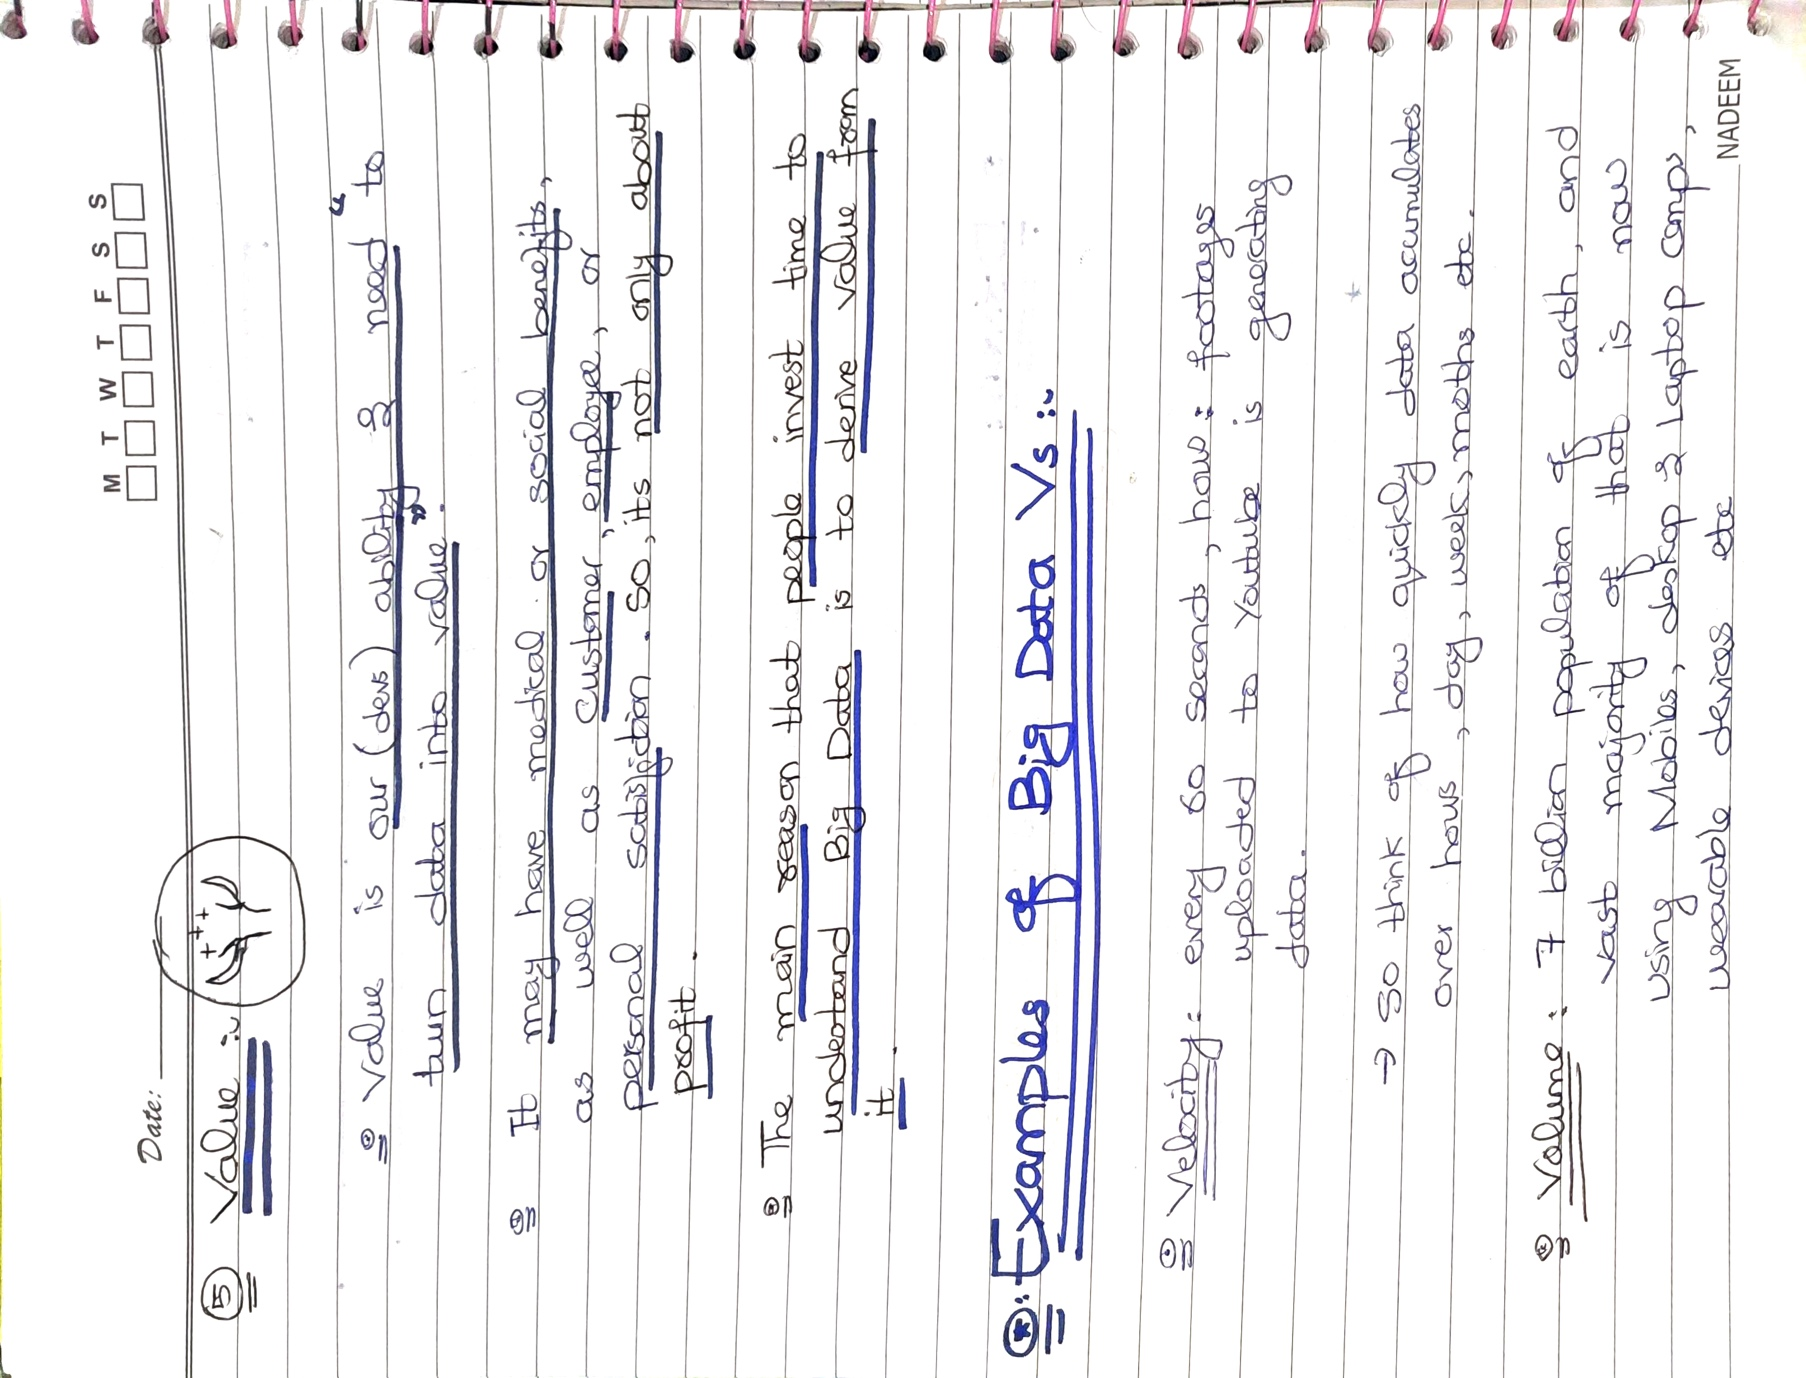 M T W T F S S
Date:
⑤ Value :~
Value is our (devs) ability & need “ to
turn data into value”.
It may have medical or social benefits,
as well as customer, employee, or
personal satisfaction. So, its not only about
profit.
The main reason that people invest time to
understand Big Data is to derive value from
it.
⊛: Examples of Big Data Vs :~
Velocity: every 60 seconds, hours footages
uploaded to Youtube is generating
data.
→ So think of how quickly data accumulates
over hours, day, week, moths etc.
Volume: 7 billian population of earth, and
vast majority of that is now
using Mobiles, deskop & Laptop comps,
wearable devices etc
NADEEM